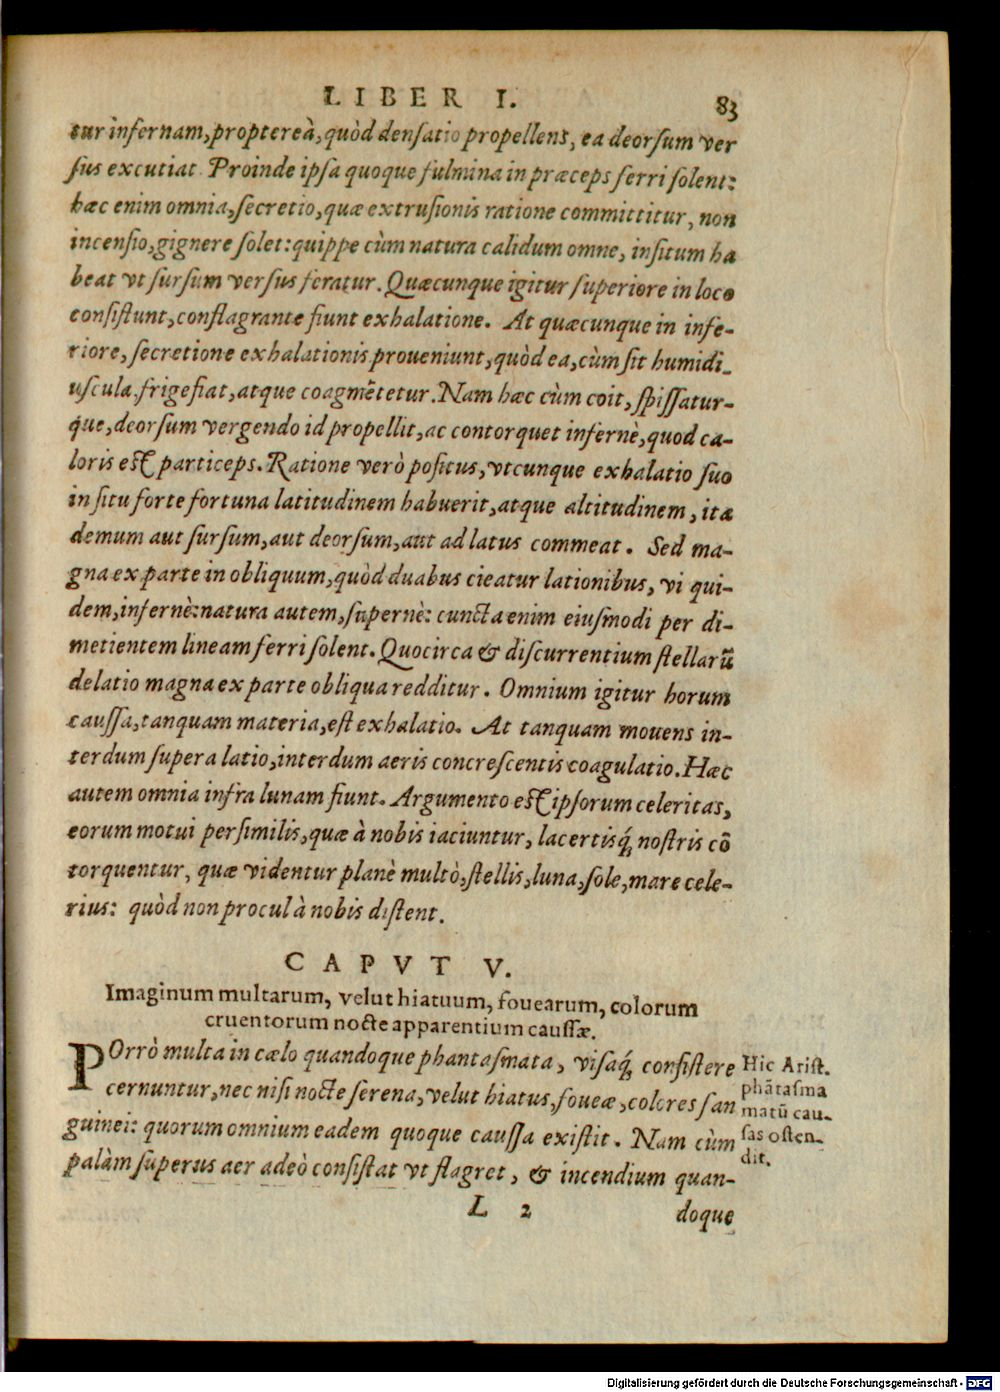 LIBER I.
83
tur infernam, propterea, quòd densatio propellens, ea deorsum ver
sus excutiat. Proinde ipsa quoque fulmina in præceps ferri solent:
hæc enim omnia, secretio, quæ extrusionis ratione committitur, non
incensio, gignere solet: quippe cùm natura calidum omne, insitum ha
beat vt sursum versus feratur. Quæcunque igitur superiore in loco
consistunt, conflagrante fiunt exhalatione. At quæcunque in infe-
riore, secretione exhalationis proueniunt, quòd ea, cùm sit humidi-
uscula, frigefiat, atque coagmētetur. Nam hæc cùm coit, spissatur-
que, deorsum vergendo id propellit, ac contorquet infernè, quod ca-
loris est particeps. Ratione verò positus, vtcunque exhalatio suo
in situ forte fortuna latitudinem habuerit, atque altitudinem, ita
demum aut sursum, aut deorsum, aut ad latus commeat. Sed ma-
gna ex parte in obliquum, quòd duabus cieatur lationibus, vi qui-
dem, infernè: natura autem, supernè: cuncta enim eiusmodi per di-
metientem lineam ferri solent. Quocirca & discurrentium stellarū
delatio magna ex parte obliqua redditur. Omnium igitur horum
caussa, tanquam materia, est exhalatio. At tanquam mouens in-
terdum supera latio, interdum aeris concrescentis coagulatio. Hæc
autem omnia infra lunam fiunt. Argumento est ipsorum celeritas,
eorum motui persimilis, quæ à nobis iaciuntur, lacertisq́; nostris cō
torquentur, quæ videntur planè multò, stellis, luna, sole, mare cele-
rius: quòd non procul à nobis distent.
CAPVT V.
Imaginum multarum, velut hiatuum, fouearum, colorum
cruentorum nocte apparentium caussæ.
POrrò multa in cælo quandoque phantasmata, visaq́; consistere
cernuntur, nec nisi nocte serena, velut hiatus, foueæ, colores san
guinei: quorum omnium eadem quoque caussa existit. Nam cùm
palàm superus aer adeò consistat vt flagret, & incendium quan-
Hic Arist.
phātasma
matū cau-
sas osten-
dit.
L 2
doque
Digitalisierung gefördert durch die Deutsche Forschungsgemeinschaft - DFG